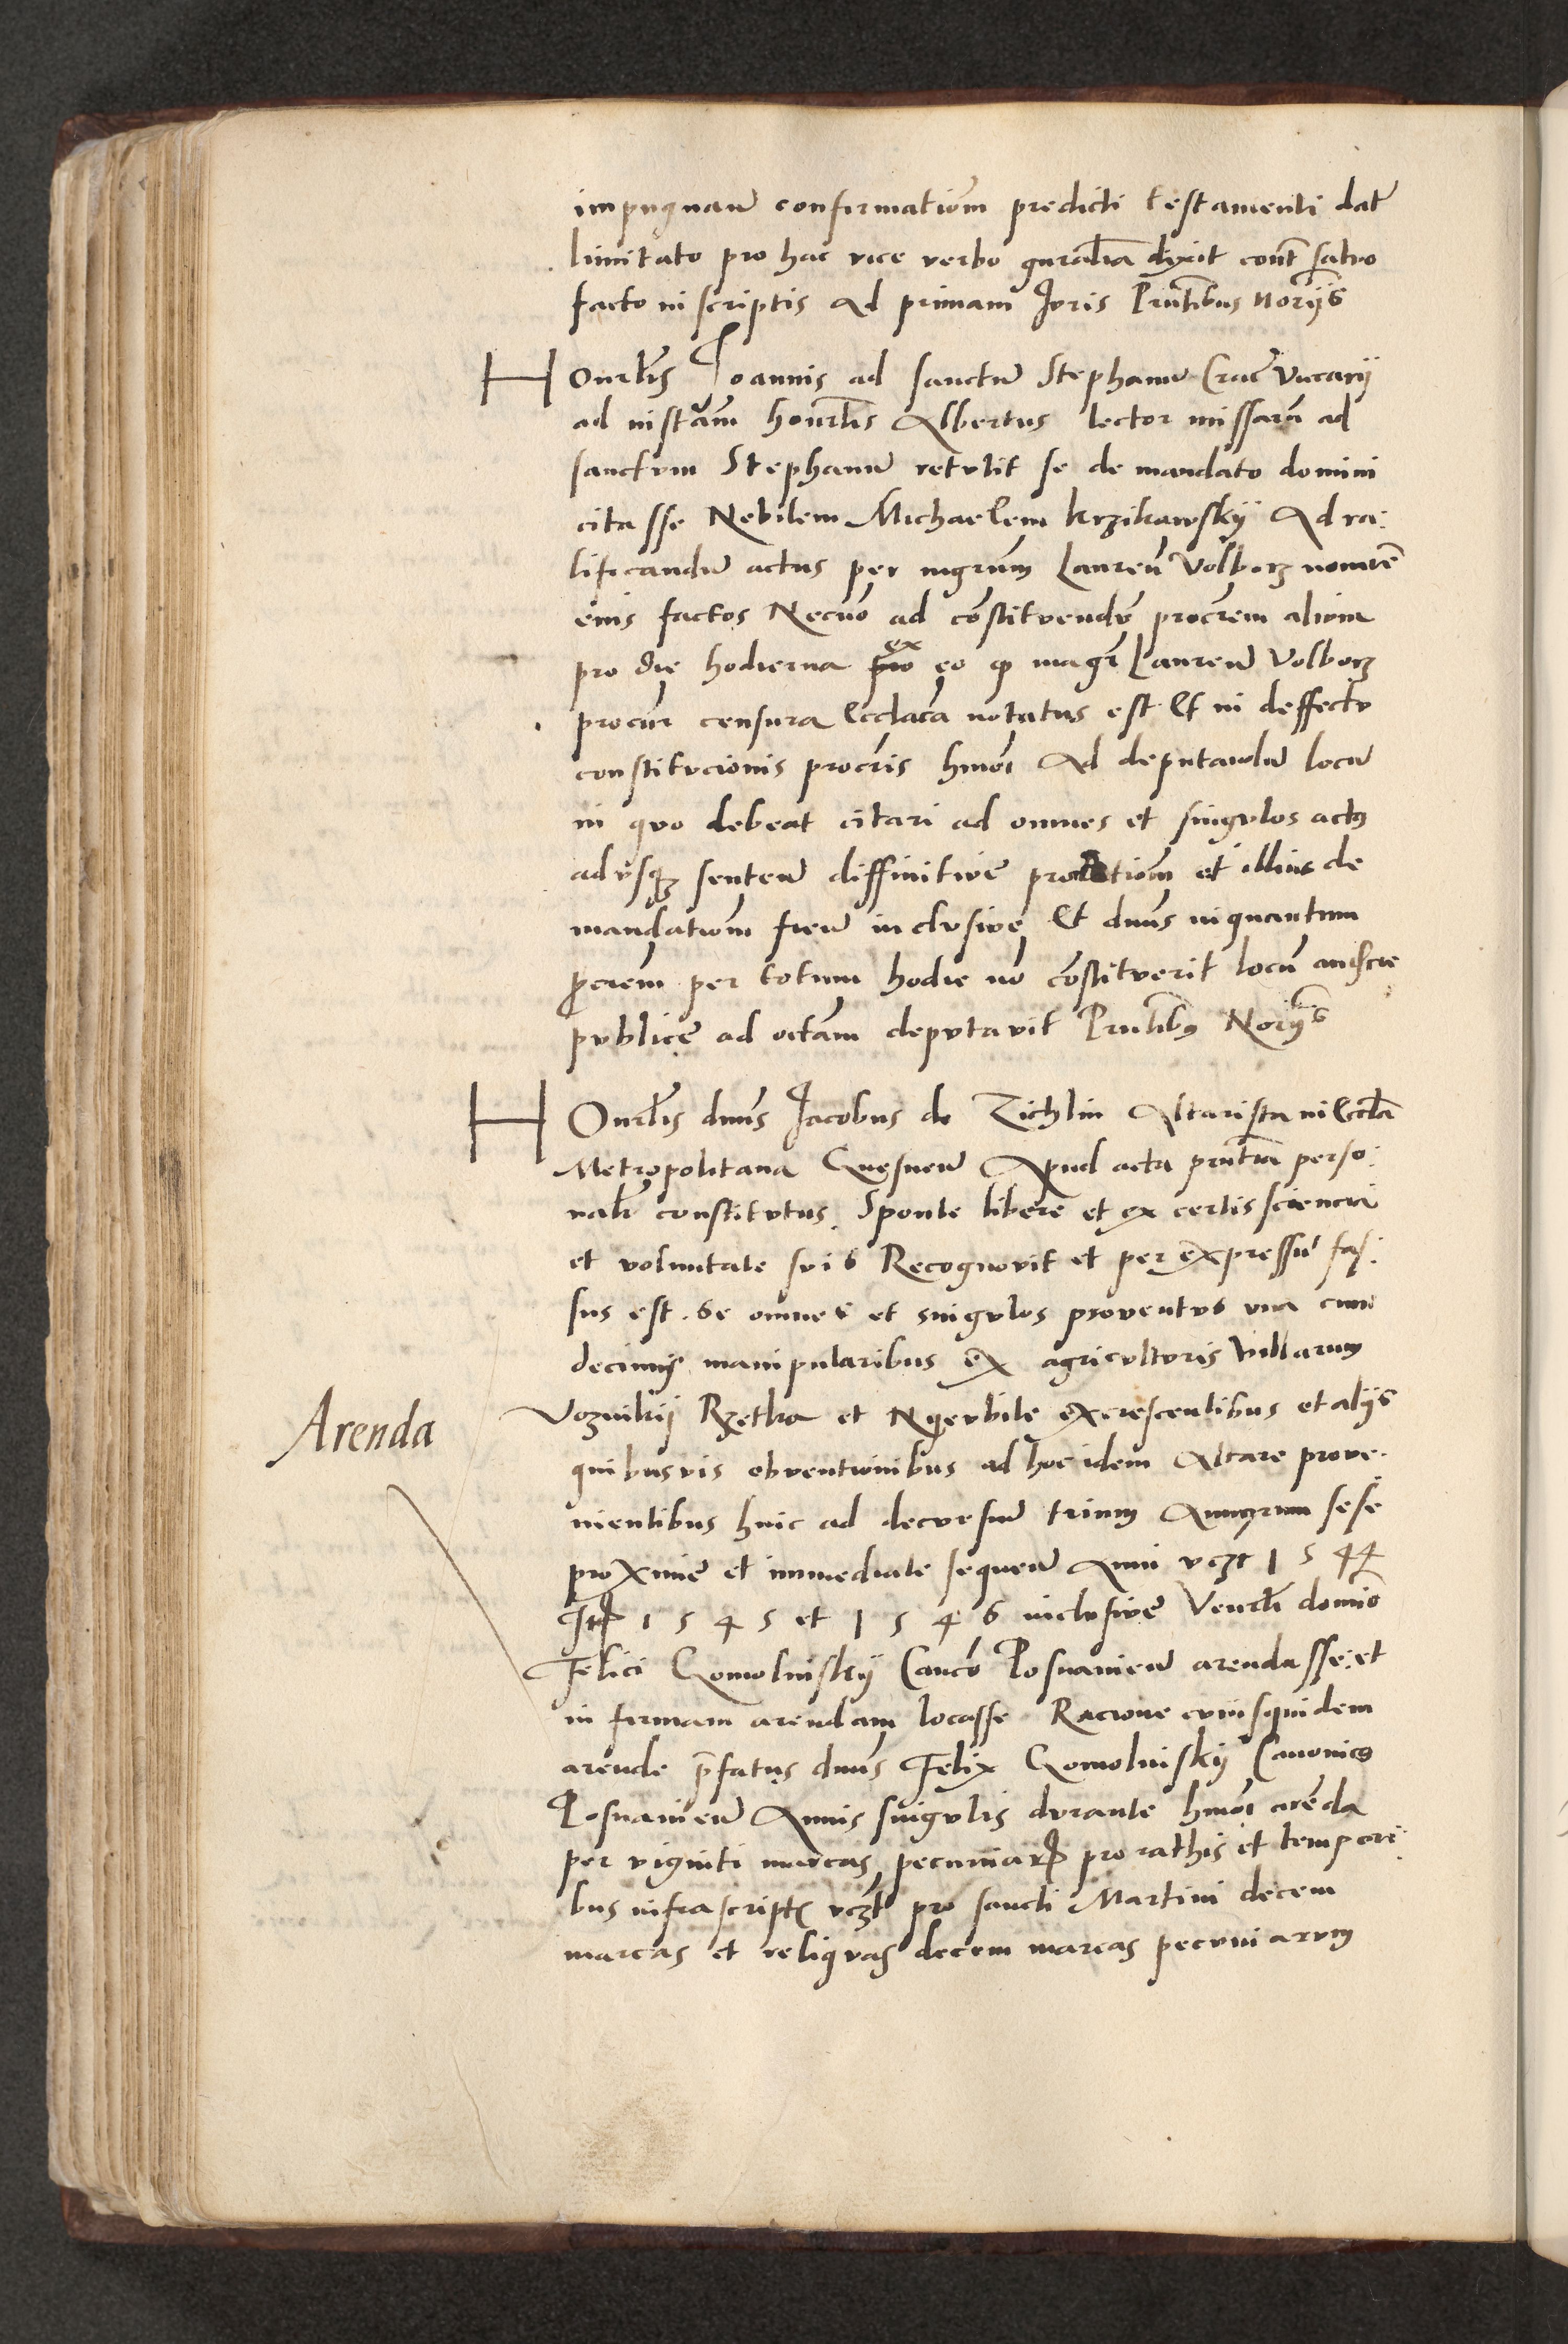 impugnan confirmationem predicti testamenti dat
limitato pro hac vice verbo gnralia dixit cont salvo
facto in scriptis Ad primam Juris Pntibus Noriis
Honrlis Joannis ad sanctum Stephanum Crac Vicarii
ad instam honrlis Albertus lector missarum ad
sanctum Stephanum retulit se de mandato domini
citasse Nobilem Michaelem Krzikawskÿ Ad ra:
tificandum actus per mgrum Lauren Volborz nomine
eius factos Necno ad constituendum procrem alium
pro die hodierna ex eo q magr Lauren Volborz
procur censura Ecclaca notatus est Et in deffectu
constitucionis procris hmoi Ad deputandum locum
in quo debeat citari ad omnes et singulos actus
adusq senten diffinitive prolationem et illius de
mandationem fien inclusive Et dnus inquantum
procrem per totum hodie no constituerit locum
publice ad octam deputavit Pntibus Noriis
Honrlis dnus Jacobus de Zichlin Altarista in Eccla
Metropolitana Gnesnen Apud acta pntia perso:
nalr constitutus Sponte libere et ex certis sciencia
et voluntate suis Recognovit et per expressum fas:
sus est. Se omnes et singulos proventus una cum
decimis manipularibus ex agriculturis villarum
Voznikÿ Rzetka et excrescentibus et aliis
quibusvis obventionibus ad hoc idem Altare prove.
nientibus huic ad decursum trium Annorum sese
proxime et immediate sequen Anni vczt 1544
Itm 1545 et 1546 inclusive Venrli domino
Felici Gomolinskÿ Canco Posnanien arendasse et
in firmam arendam locasse Racione cuiusquidem
arende pfatus dnus Felix Gomolinskÿ Canonicus
Posnanien Annis singulis durante hmoi arenda
per viginti marcas pecuniar pro rathis et tempori:
bus infrascriptis vczt pro sancti Martini decem
marcas et reliquas decem marcas pecuniarum
Arenda